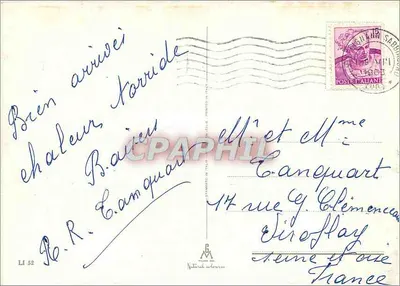 Bien arrivés
chaleur torride
Baisers
R. R. Tanquart
CPAPHIL
POSTE ITALIANE
Mr et Mme
Tanquart
17 rue G. Clémenceau
Viroflay
Seine et Oise
France
LI 52